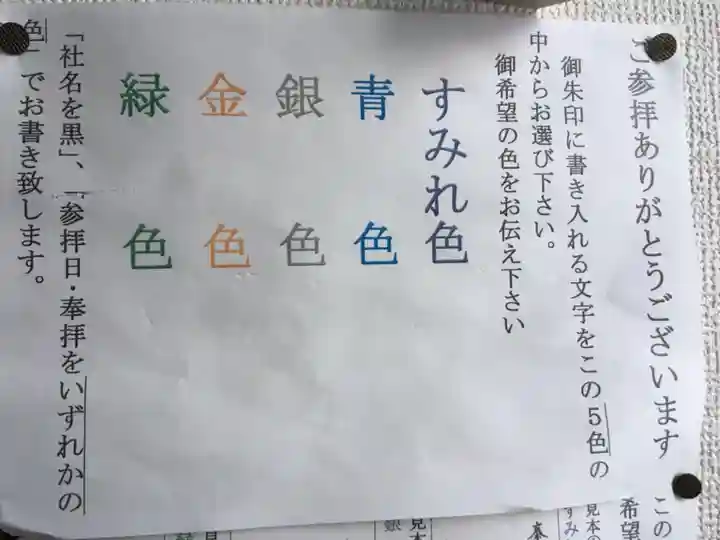 ご参拝ありがとうございます
御朱印に書き入れる文字をこの5色の
中からお選び下さい。
御希望の色をお伝え下さい
すみれ色
青色
銀色
金色
緑色
「社名を黒」、「参拝日・奉拝をいずれかの
色」でお書き致します。
この
希望
見本の
すみ
奉
見本
銀
見
緑